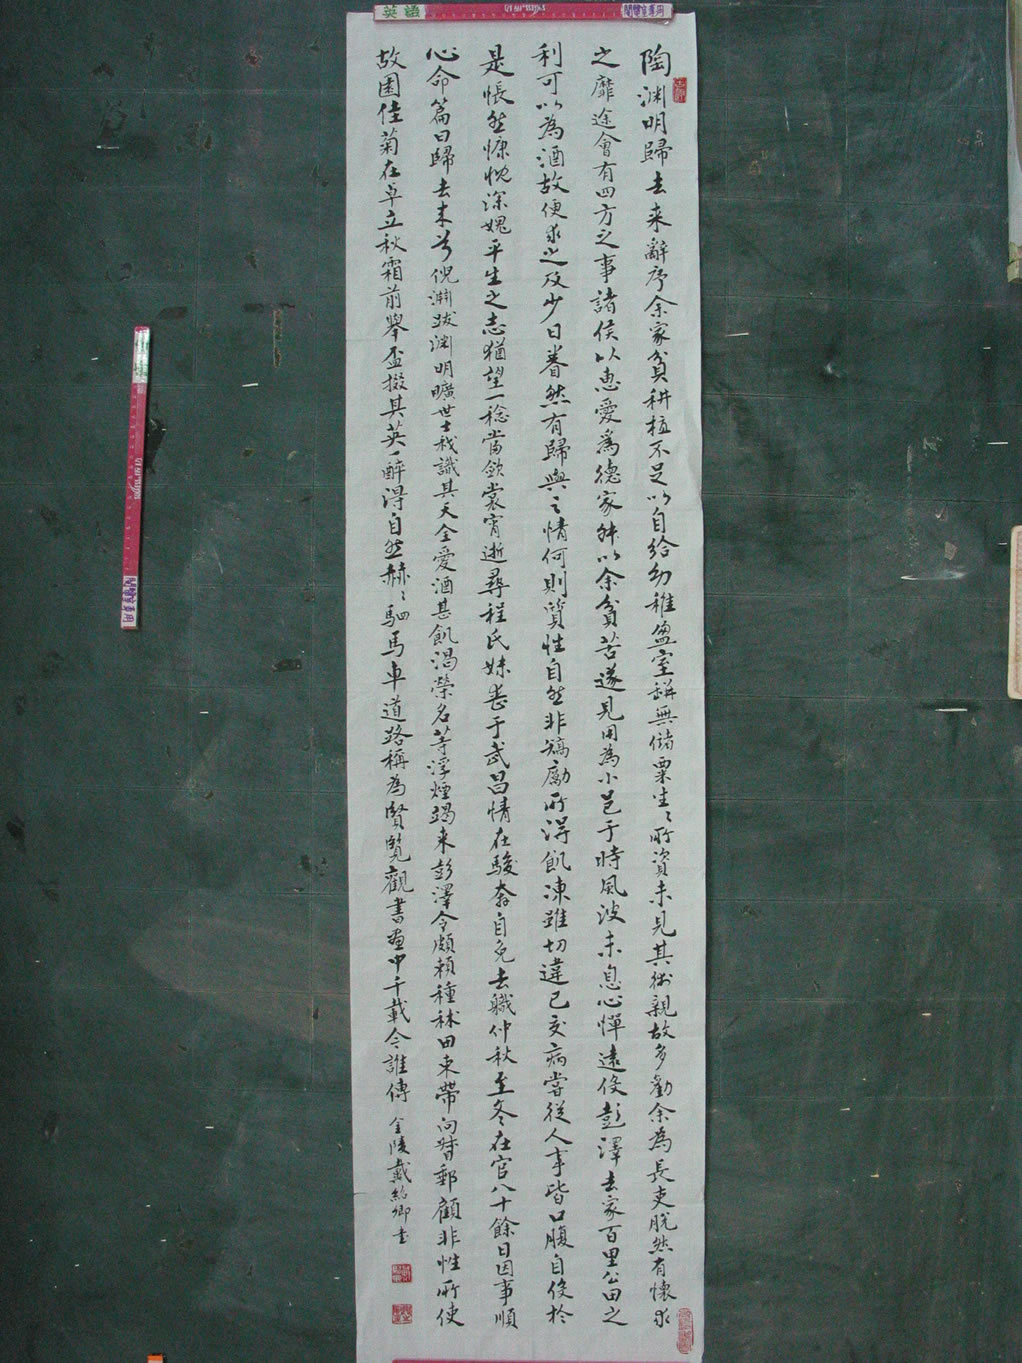 陶渊明歸去来辭序余家貧耕植不足以自給幼稚盈室缾無儲粟生〻所資未見其術親故多勸余為長吏脱然有懷求
之靡途會有四方之事諸侯以惠愛為德家叔以余貧苦遂見用為小邑于時風波未息心憚遠役彭澤去家百里公田之
利可以為酒故便求之及少日眷然有歸與之情何則質性自然非矯勵所得飢凍雖切違己交病嘗從人事皆口腹自役於
是悵然慷慨深媿平生之志猶望一稔當斂裳宵逝尋程氏妹喪于武昌情在駿奔自免去職仲秋至冬在官八十餘日因事順
心命篇曰歸去来兮倪渊跋渊明曠世士我識其天全愛酒甚飢渴榮名等浮煙竭来彭澤令頗賴種秫田束帶向督郵顧非性所使
故園佳菊在卓立秋霜前舉盃掇其英一醉得自然赫〻駟馬車道路稱為賢覽觀書畫中千載令誰傳 金陵戴紹卿書
英語
閱覽室專用
閱覽室專用